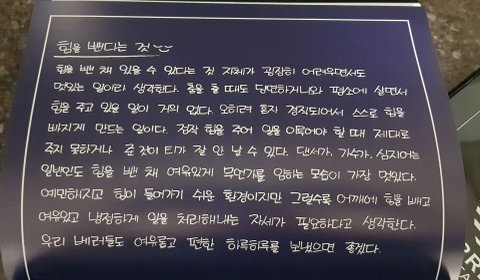 힘을 뺀다는 것
힘을 뺀 채 있을 수 있다는 것 자체가 굉장히 어려우면서도
멋있는 일이라 생각한다. 춤을 출 때도 당연하거니와 평소에 살면서
힘을 주고 있을 일이 거의 없다. 오히려 혼자 경직되어서 스스로 힘을
빠지게 만드는 일이다. 정작 힘을 주어 일을 이룩해야 할 때 제대로
주지 못하거나 준 것이 티가 잘 안 날 수 있다. 댄서가, 가수가, 심지어는
일반인도 힘을 뺀 채 여유있게 무언가를 임하는 모습이 가장 멋있다.
예민해지고 힘이 들어가기 쉬운 환경이지만 그럴수록 어깨에 힘을 빼고
여유있고 냉정하게 일을 처리해내는 자세가 필요하다고 생각한다.
우리 베러들도 여유롭고 편한 하루하루를 보냈으면 좋겠다.